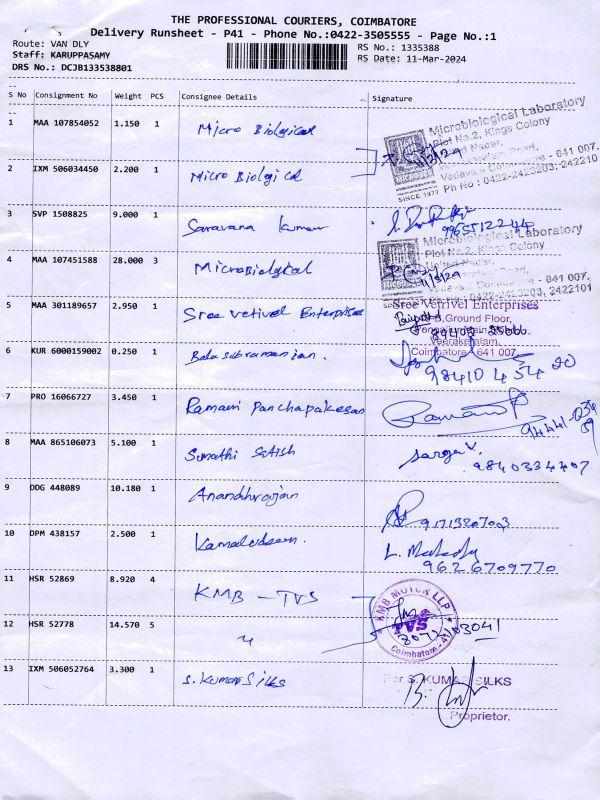 THE PROFESSIONAL COURIERS, COIMBATORE
Delivery Runsheet - P41 - Phone No.:0422-3505555 - Page No.:1
Route: VAN DLY
Staff: KARUPPASAMY
DRS No.: DCJB133538801
RS No.: 1335388
RS Date: 11-Mar-2024
S No Consignment No Weight PCS Consignee Details Signature
1 MAA 107854052 1.150 1 Micro Biological
Microbiological Laboratory
Plot No.2, Kings Colony
SINCE 1977
641 007
Ph No : 0422-2423203, 2422101
2 IXM 506034450 2.200 1 Micro Biological
3 SVP 1508825 9.000 1 Saravana Kumar
9965512244
4 MAA 107451588 28.000 3 Microbiological
Microbiological Laboratory
Plot No.2, Kings Colony
641 007.
5 MAA 301189657 2.950 1 Sree Vetrivel Enterprises
Sree Vetrivel Enterprises
Ground Floor,
Veerakeralam,
Coimbatore - 641 007.
6 KUR 6000159002 0.250 1 Bala subramanian.
98410 454 20
7 PRO 16066727 3.450 1 Ramani Panchapakesan
8 MAA 865106073 5.100 1 Sumathi Satish
9840334407
9 DDG 448089 10.180 1 Anandhrajan
9171320703
10 DPM 438157 2.500 1
9626709770
11 HSR 52869 8.920 4 KMB - TVS
KMB MOTOR LLP
TVS
12 HSR 52778 14.570 5 "
13 IXM 506052764 3.300 1 S. Kumar Silks
For S. KUMAR SILKS
Proprietor.